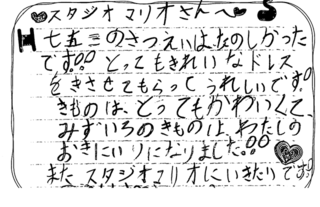 ♥スタジオマリオさんへ♥
七五三のさつえいは、たのしかった
です!!とってもきれいなドレス
をきさせてもらってうれしいです。
きものは、とってもかわいくて、
みずいろのきものは、わたしの
おきにいりになりました!!
またスタジオマリオにいきたいです!!